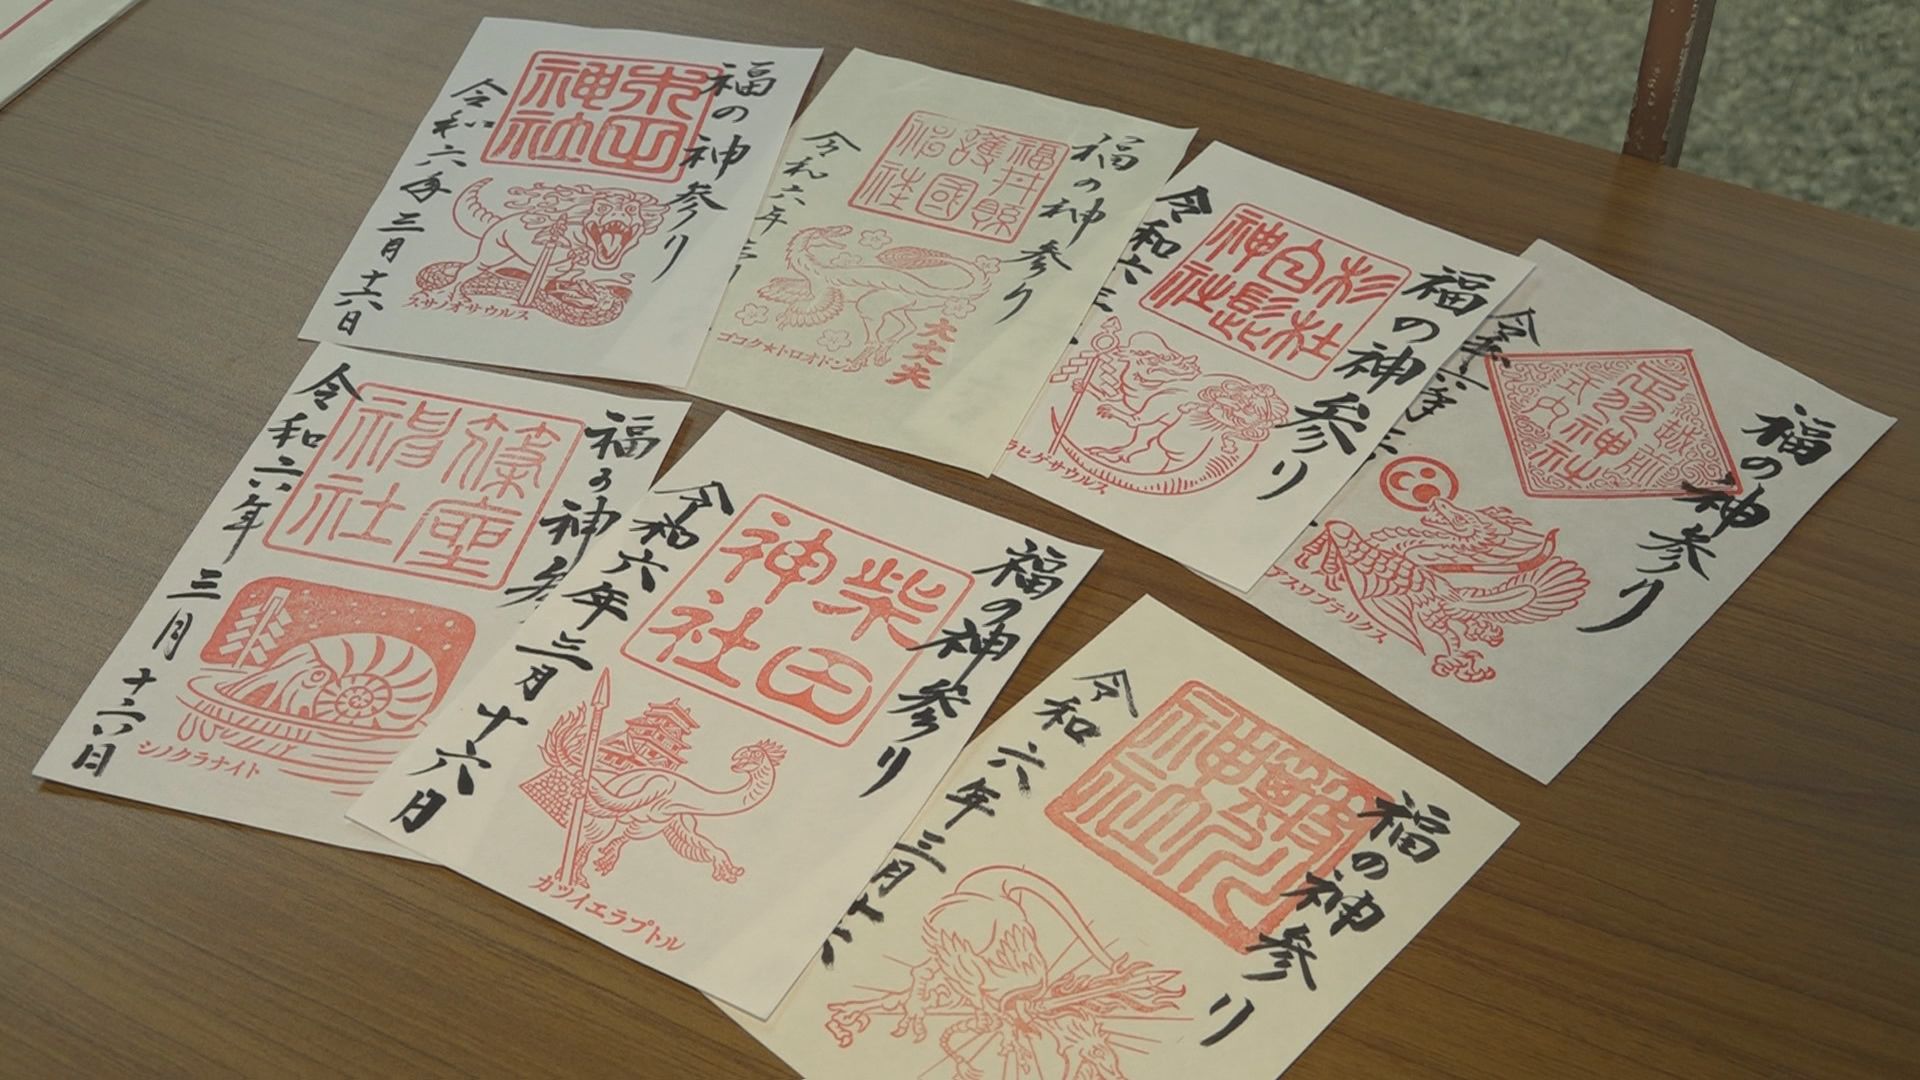 福の神参り
木田神社
令和六年三月十六日
スサノオサウルス
福の神参り
福井縣護國神社
令和六年三
ゴコク★トロオドン
大丈夫
福の神参り
杉社白髭神社
令和六年三
ラヒゲサウルス
福の神参り
越前
足羽神社
式内
令和六年三
アスワプテリクス
福の神参
篠座神社
令和六年三月十六日
シノクラナイト
福の神参り
柴田神社
令和六年三月十六日
カツイエラプトル
福の神参り
神社
令和六年三月十六